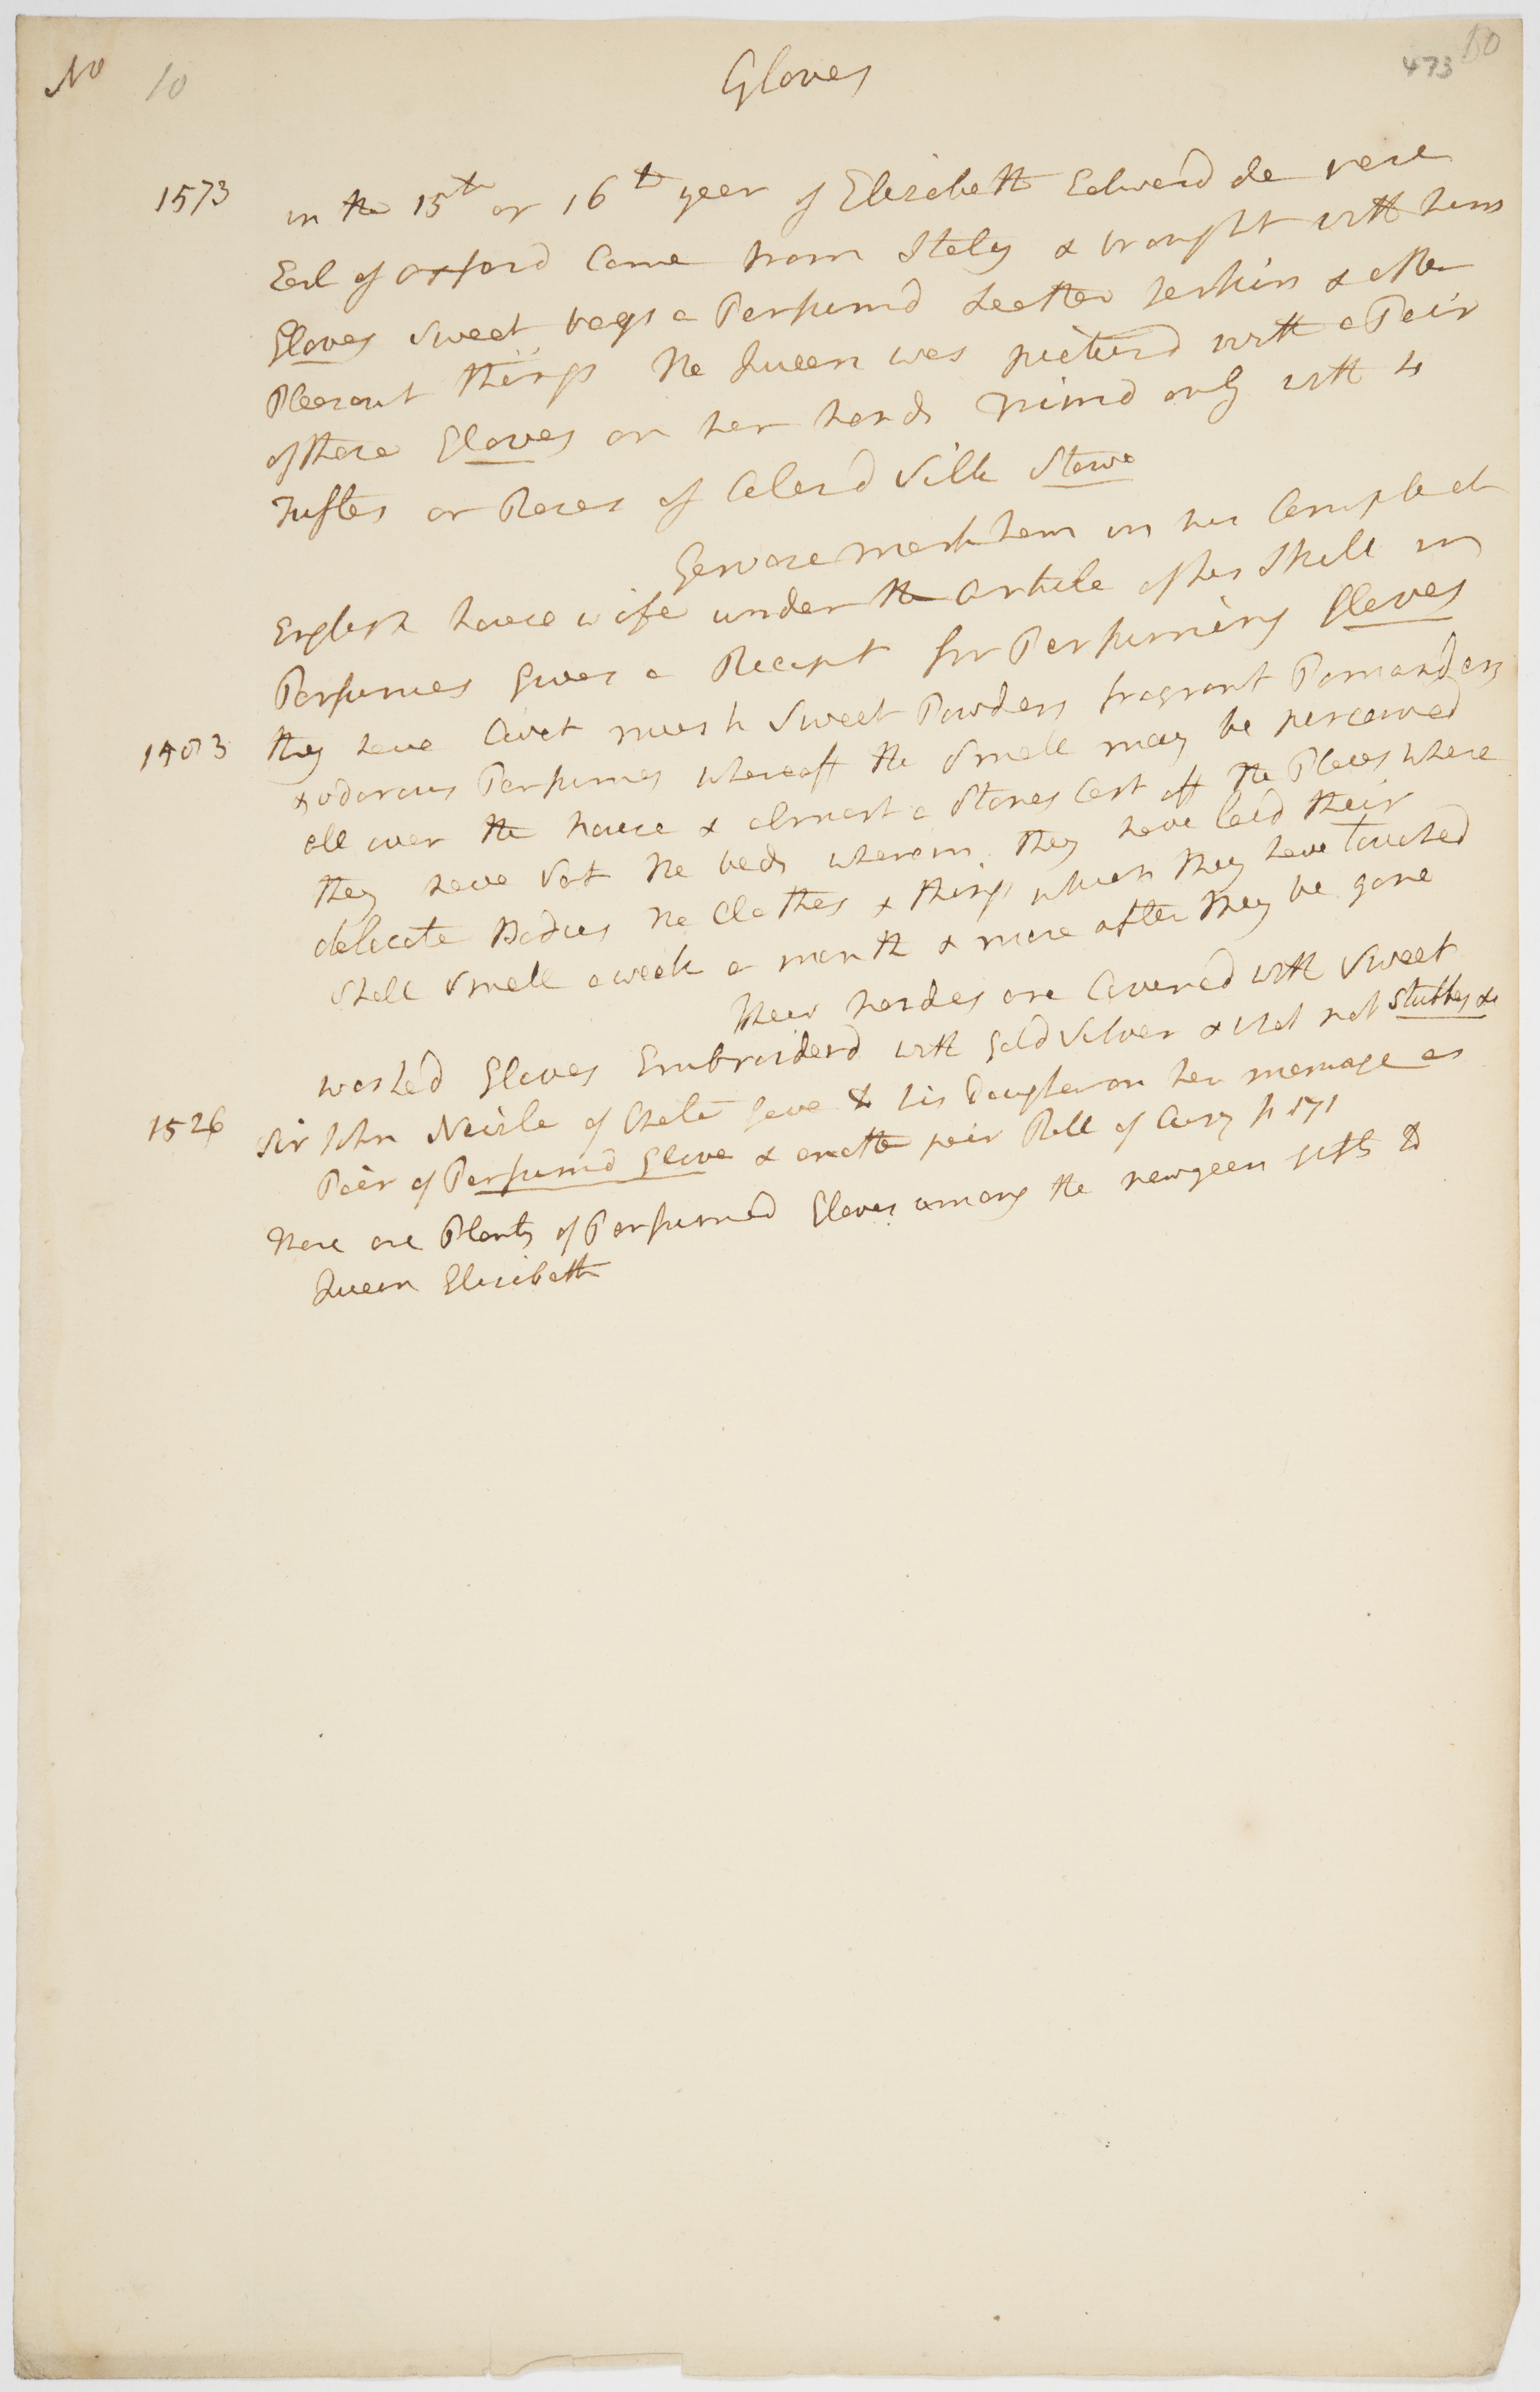 No 10 Gloves 473 60
1573 in the 15th or 16th year of Elizabeth Edward de vere
Earl of oxford Came from Italy & brought with him
Gloves Sweet bags a Perfumd Leather Jerkin & other
Pleasant things the Queen was picturd with a Pair
of these Gloves on her hands trimd only with 4
Tuftes or Roses of Colerd Silk Stowe
Gervase markham in his Compleat
English house wife under the Article of her Skill in
Perfumes gives a Receipt for Perfuming Gloves
1583 they have Civet musk Sweet Powders fragrant Pomanders
& odorous Perfumes whereoff the Smell may be perceived
all over the house & almost a Stones Cast off the Places where
they have Sat the beds wherein they have laid their
delicate Bodies the Clothes & things which they have touched
Shall Smell a week a month & more after they be gone
their handes are Covered with Sweet
washed Gloves Embroiderd with Gold Silver & what not Stubbes &c
1526 Sir John Nevile of Chete gave to his Daughter on her marriage as
Pair of Perfumd Glove & another pair Roll of Cury p 171
there are Plenty of Perfumed Gloves among the newyears gifts to
Queen Elizabeth